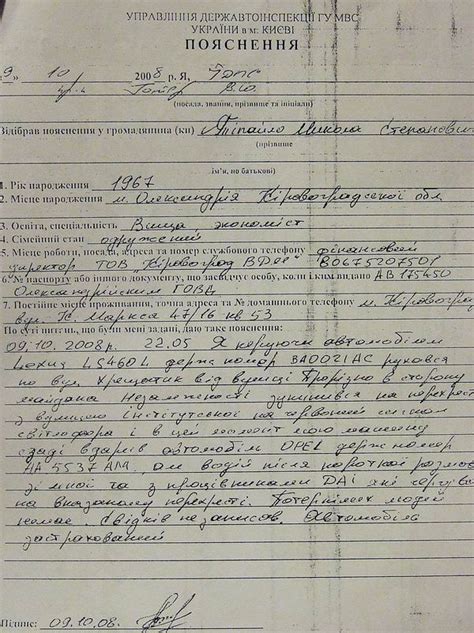 УПРАВЛІННЯ ДЕРЖАВТОІНСПЕКЦІЇ ГУ МВС
УКРАЇНИ в м. КИЄВІ
ПОЯСНЕННЯ
9 » 10 2008 р. Я,
(посада, звання, прізвище та ініціали)
Відібрав пояснення у громадянина (ки) Микола Степанович
(прізвище
ім'я, по батькові)
1. Рік народження 1967
2. Місце народження м. Олександрія Кіровоградської обл
3. Освіта, спеціальність Вища економіст
4. Сімейний стан одружений
5. Місце роботи, посада, адреса та номер службового телефону фінансовий
директор ТОВ "Кіровоград 80675207501
6. № паспорту або іншого документу, що засвідчує особу, коли і ким видано АВ 175450
Олександрійським
7. Постійне місце проживання, точна адреса та № домашнього телефону м. Кіровоград
вул. К. Маркса 47/16 кв 53
По суті питань, що були мені задані, даю такі пояснення:
09.10.2008р. 22.05 Я керуючи автомобілем
Lexus LS460L держ номер ВА0021АС рухався
по вул. Хрещатик від вулиці Прорізно в сторону
майдана Незалежності зупинився на перехресті
з вулицею Інститутської на червоний сигнал
світлофора і в цей момент мою машину
сзаді вдарів автомобіль OPEL держ номер
АА 5537 АМ, водій після короткой розмови
зі мной та з працівниками ДАІ які
на вказаному перехресті. Потерпілих людей
немає. Свідків не записав. Автомобіль
застрахований
Підпис: 09.10.08.